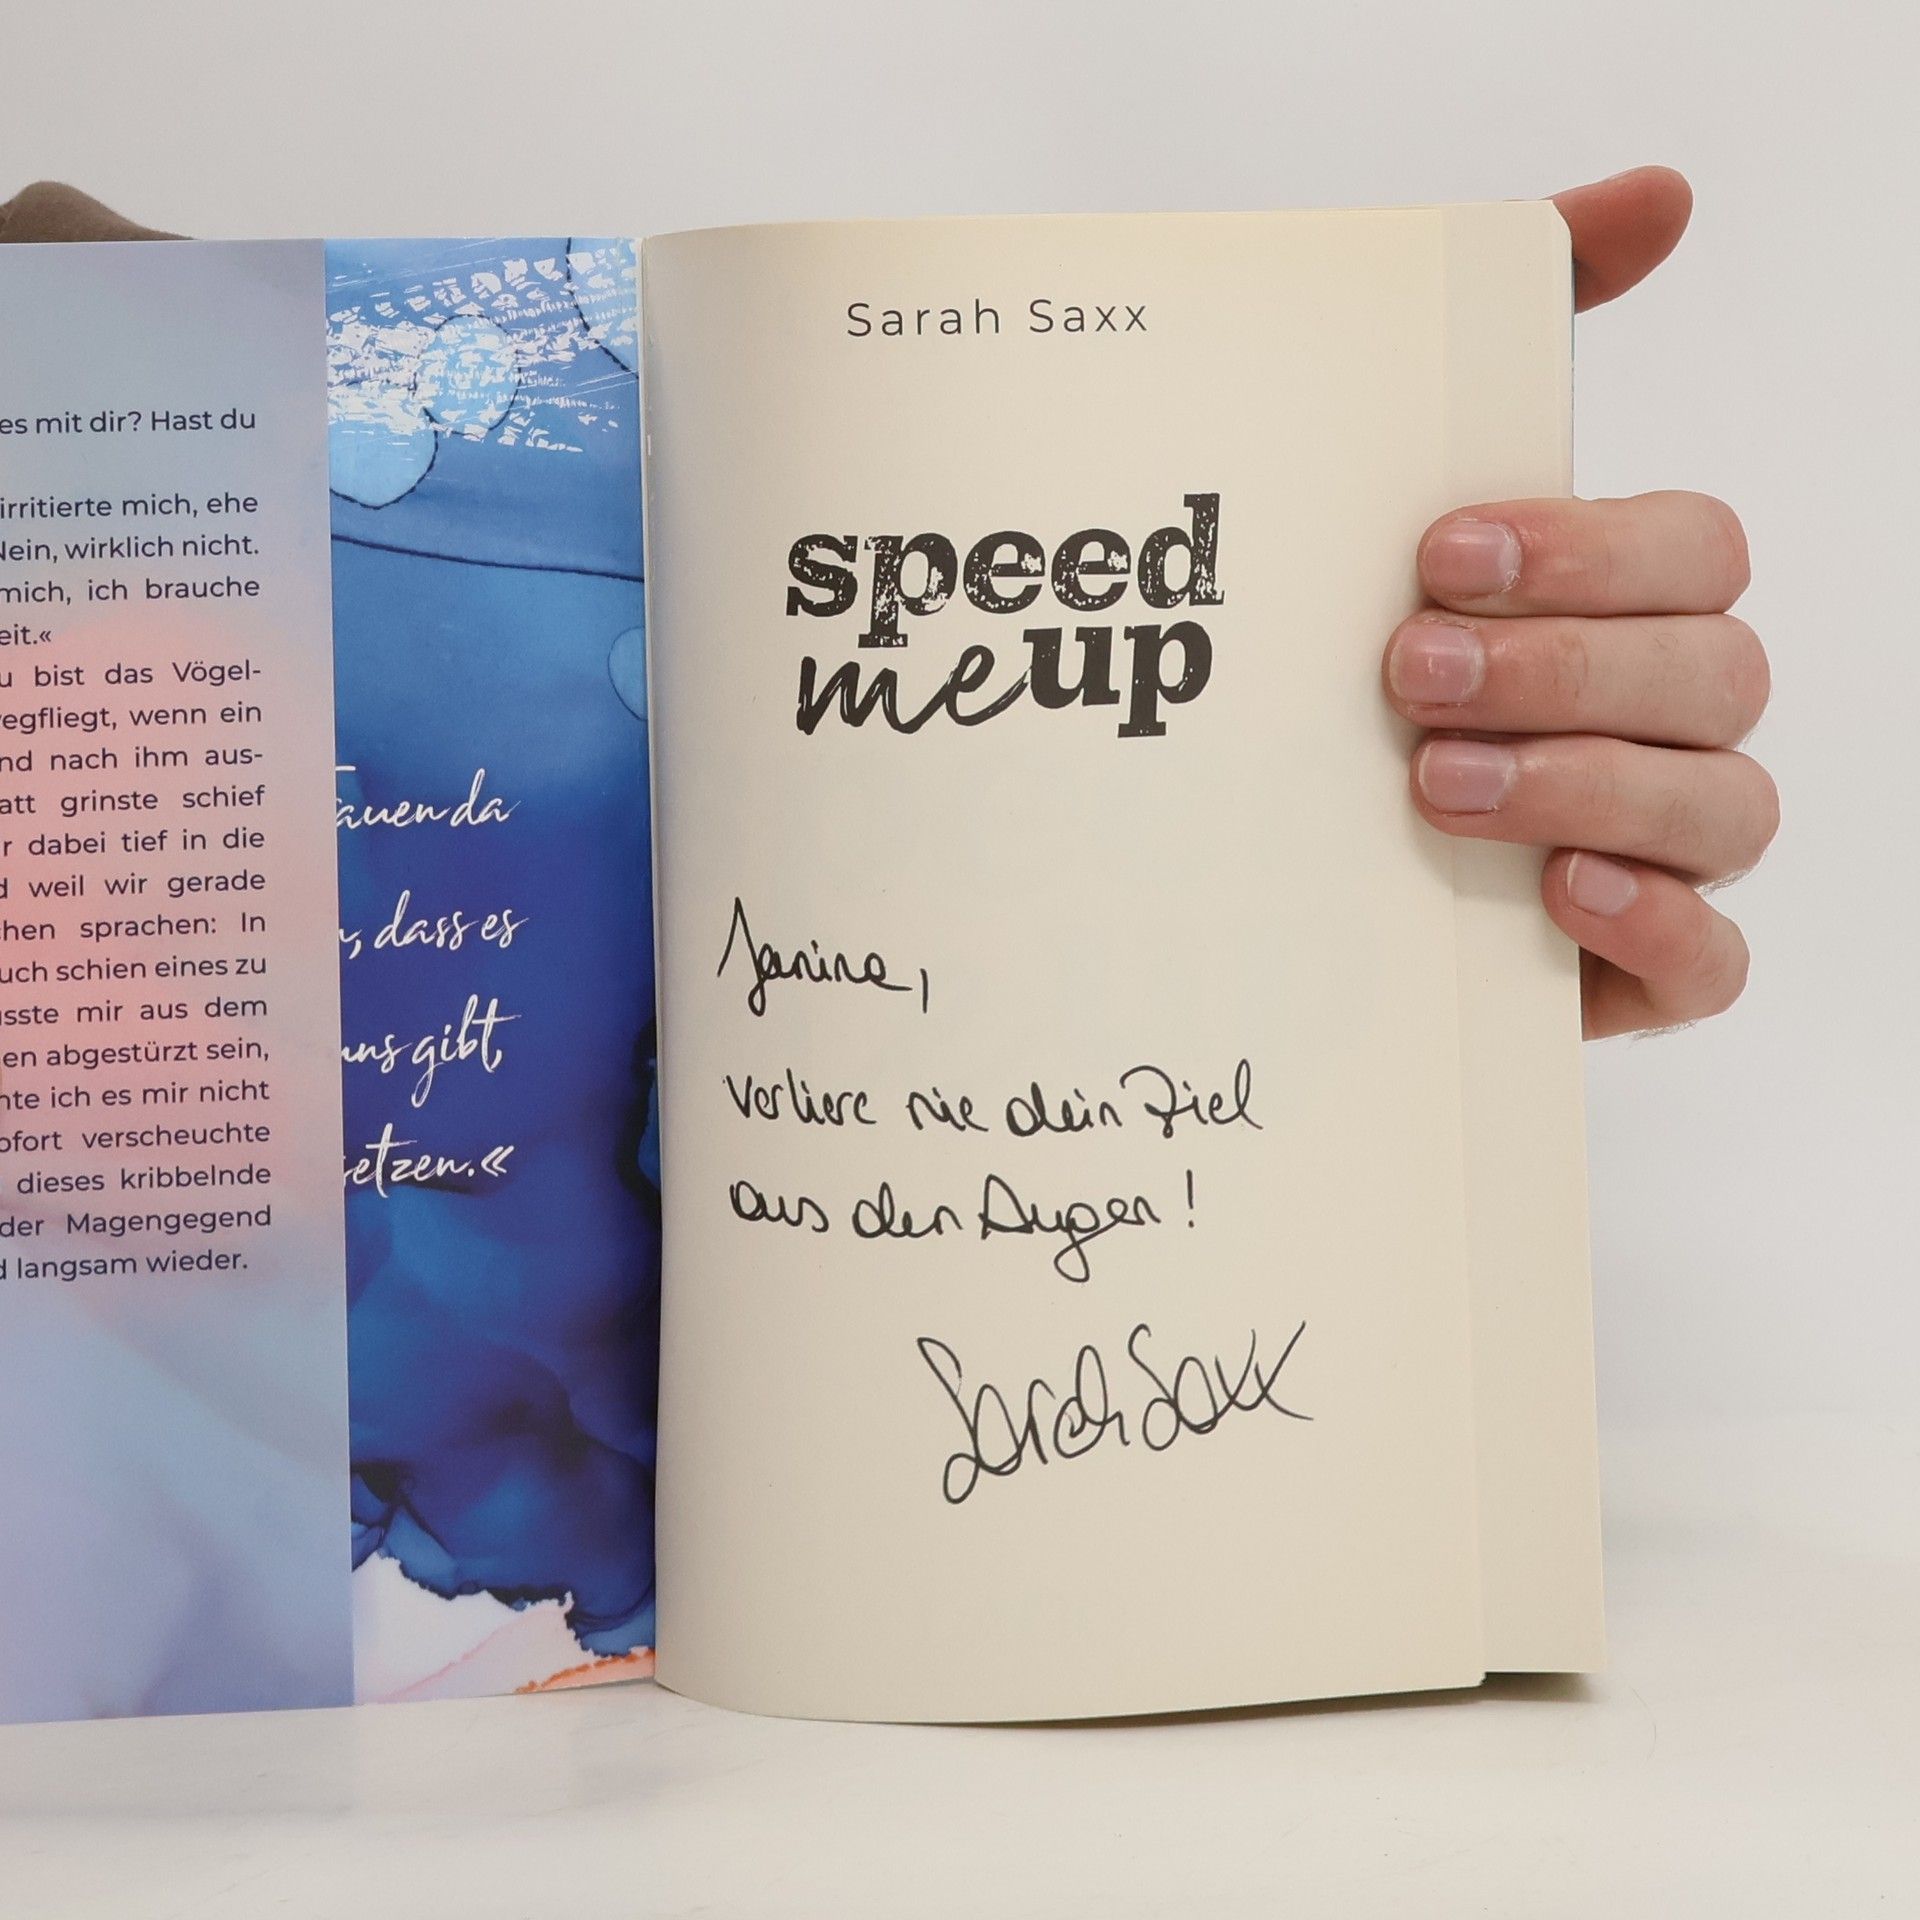 es mit dir? Hast du
irritierte mich, ehe
Nein, wirklich nicht.
mich, ich brauche
eit.«
u bist das Vögel-
egfliegt, wenn ein
nd nach ihm aus-
att grinste schief
r dabei tief in die
d weil wir gerade
chen sprachen: In
uch schien eines zu
sste mir aus dem
en abgestürzt sein,
nte ich es mir nicht
ofort verscheuchte
dieses kribbelnde
der Magengegend
d langsam wieder.
trauen da
, dass es
uns gibt,
setzen.«
Sarah Saxx
speed
me up
Janina,
verliere nie dein Ziel
aus den Augen!
Sarah Saxx